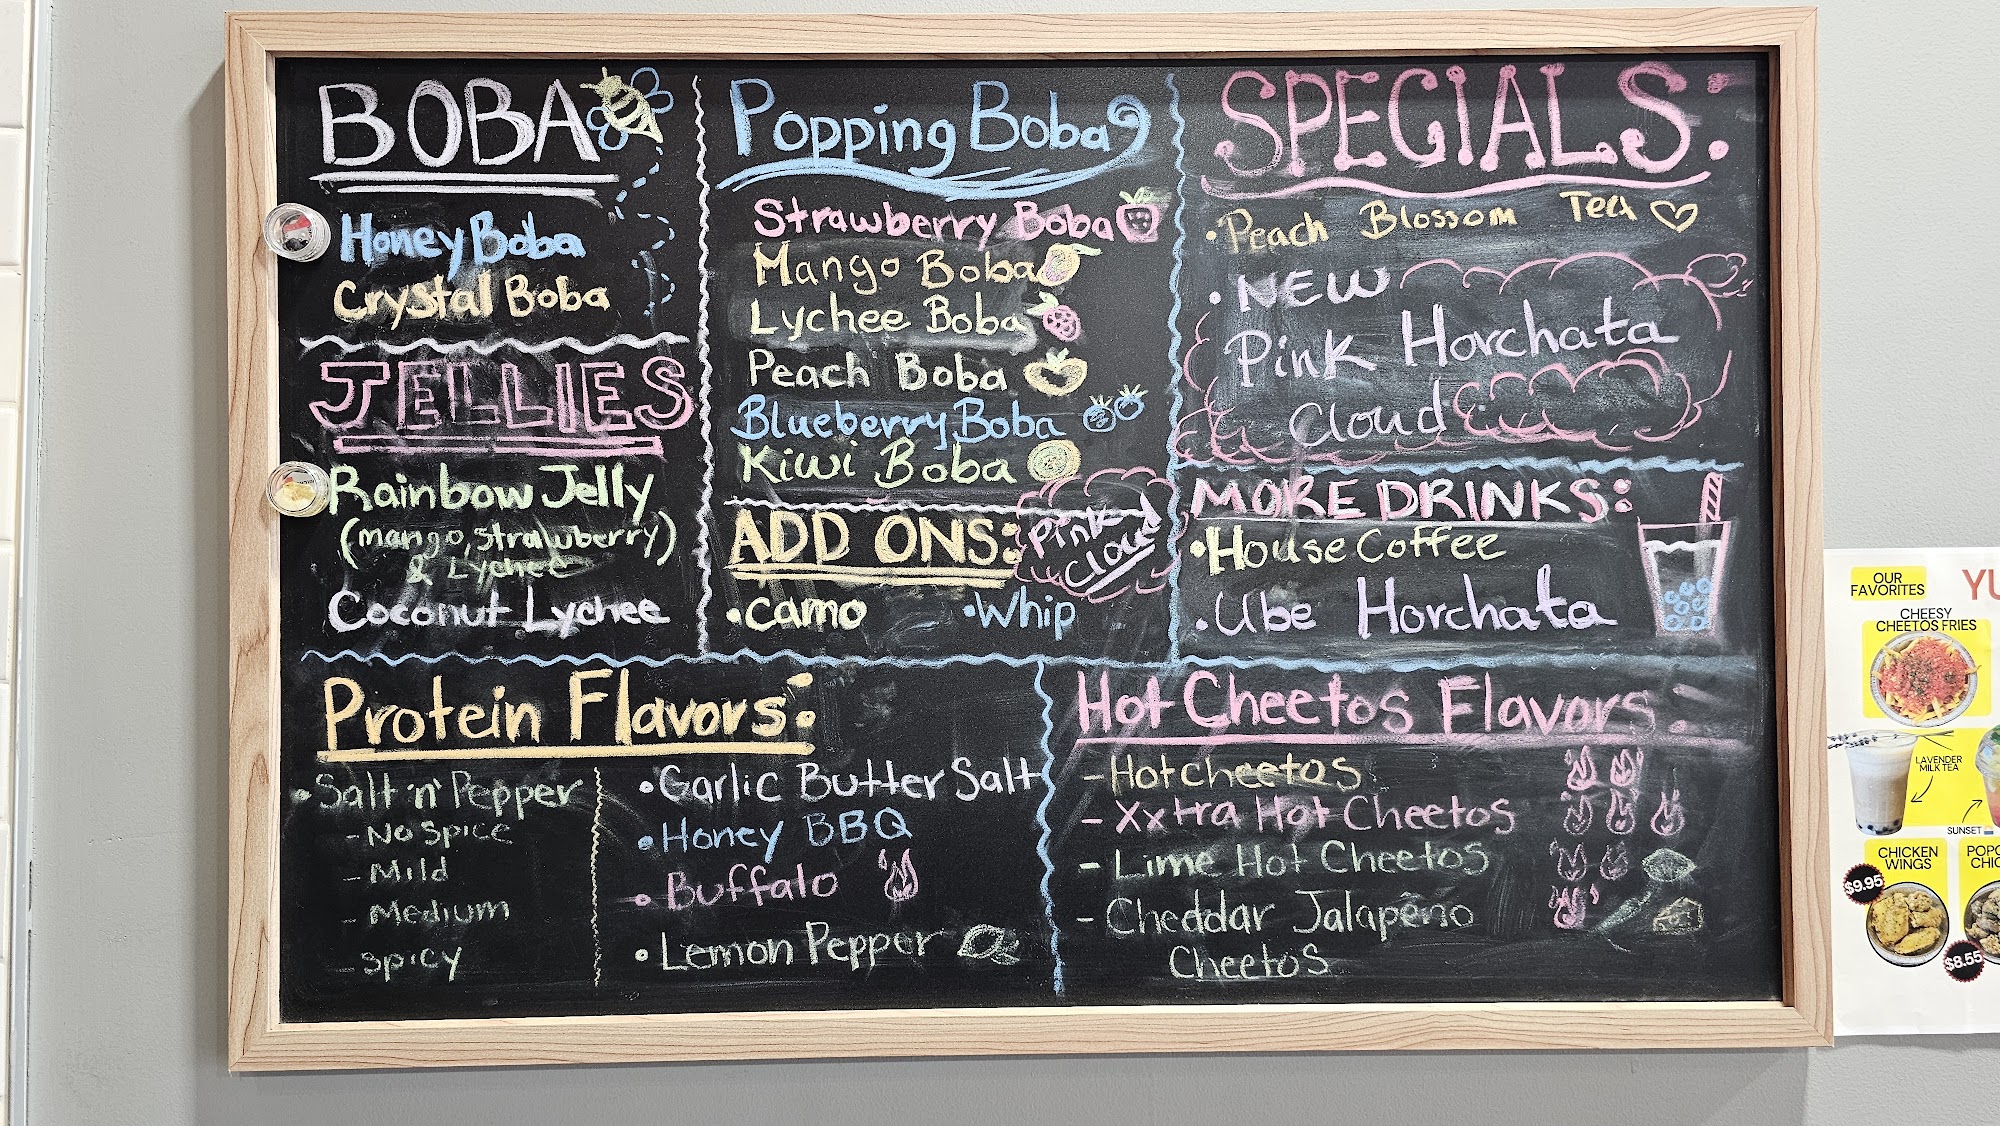 BOBA
Honey Boba
Crystal Boba
JELLIES
Rainbow Jelly
(mango, strawberry)
& Lychee
Coconut Lychee
Popping Boba
Strawberry Boba
Mango Boba
Lychee Boba
Peach Boba
Blueberry Boba
Kiwi Boba
ADD ONS:
Pink
Cloud
•Camo
•Whip
SPECIALS:
•Peach Blossom Tea
•NEW
Pink Horchata
Cloud
MORE DRINKS:
•House Coffee
•Ube Horchata
Protein Flavors:
•Salt 'n' Pepper
-No Spice
-Mild
-Medium
-Spicy
•Garlic Butter Salt
•Honey BBQ
•Buffalo
•Lemon Pepper
Hot Cheetos Flavors:
-Hot cheetos
-Xxtra Hot Cheetos
-Lime Hot Cheetos
-Cheddar Jalapeño
Cheetos
OUR
FAVORITES
YU
CHEESY
CHEETOS FRIES
LAVENDER
MILK TEA
SUNSET
CHICKEN
WINGS
$9.95
POPC
CHIC
$8.55